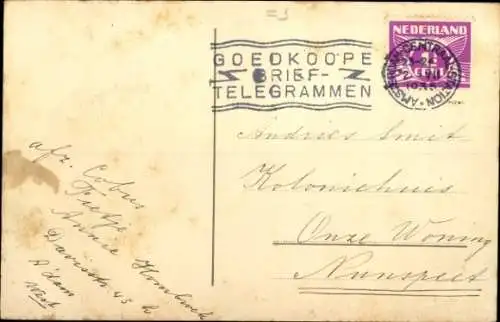 GOEDKOOPE
BRIEF-
TELEGRAMMEN
NEDERLAND
1
CENT
AMSTERDAM CENTRAAL STATION
Andries Smit
Koloniehuis
Onze Woning
Nunspeet
afz. Cobus
Tietje
Annie
Davisstr 45 h
A'dam
West